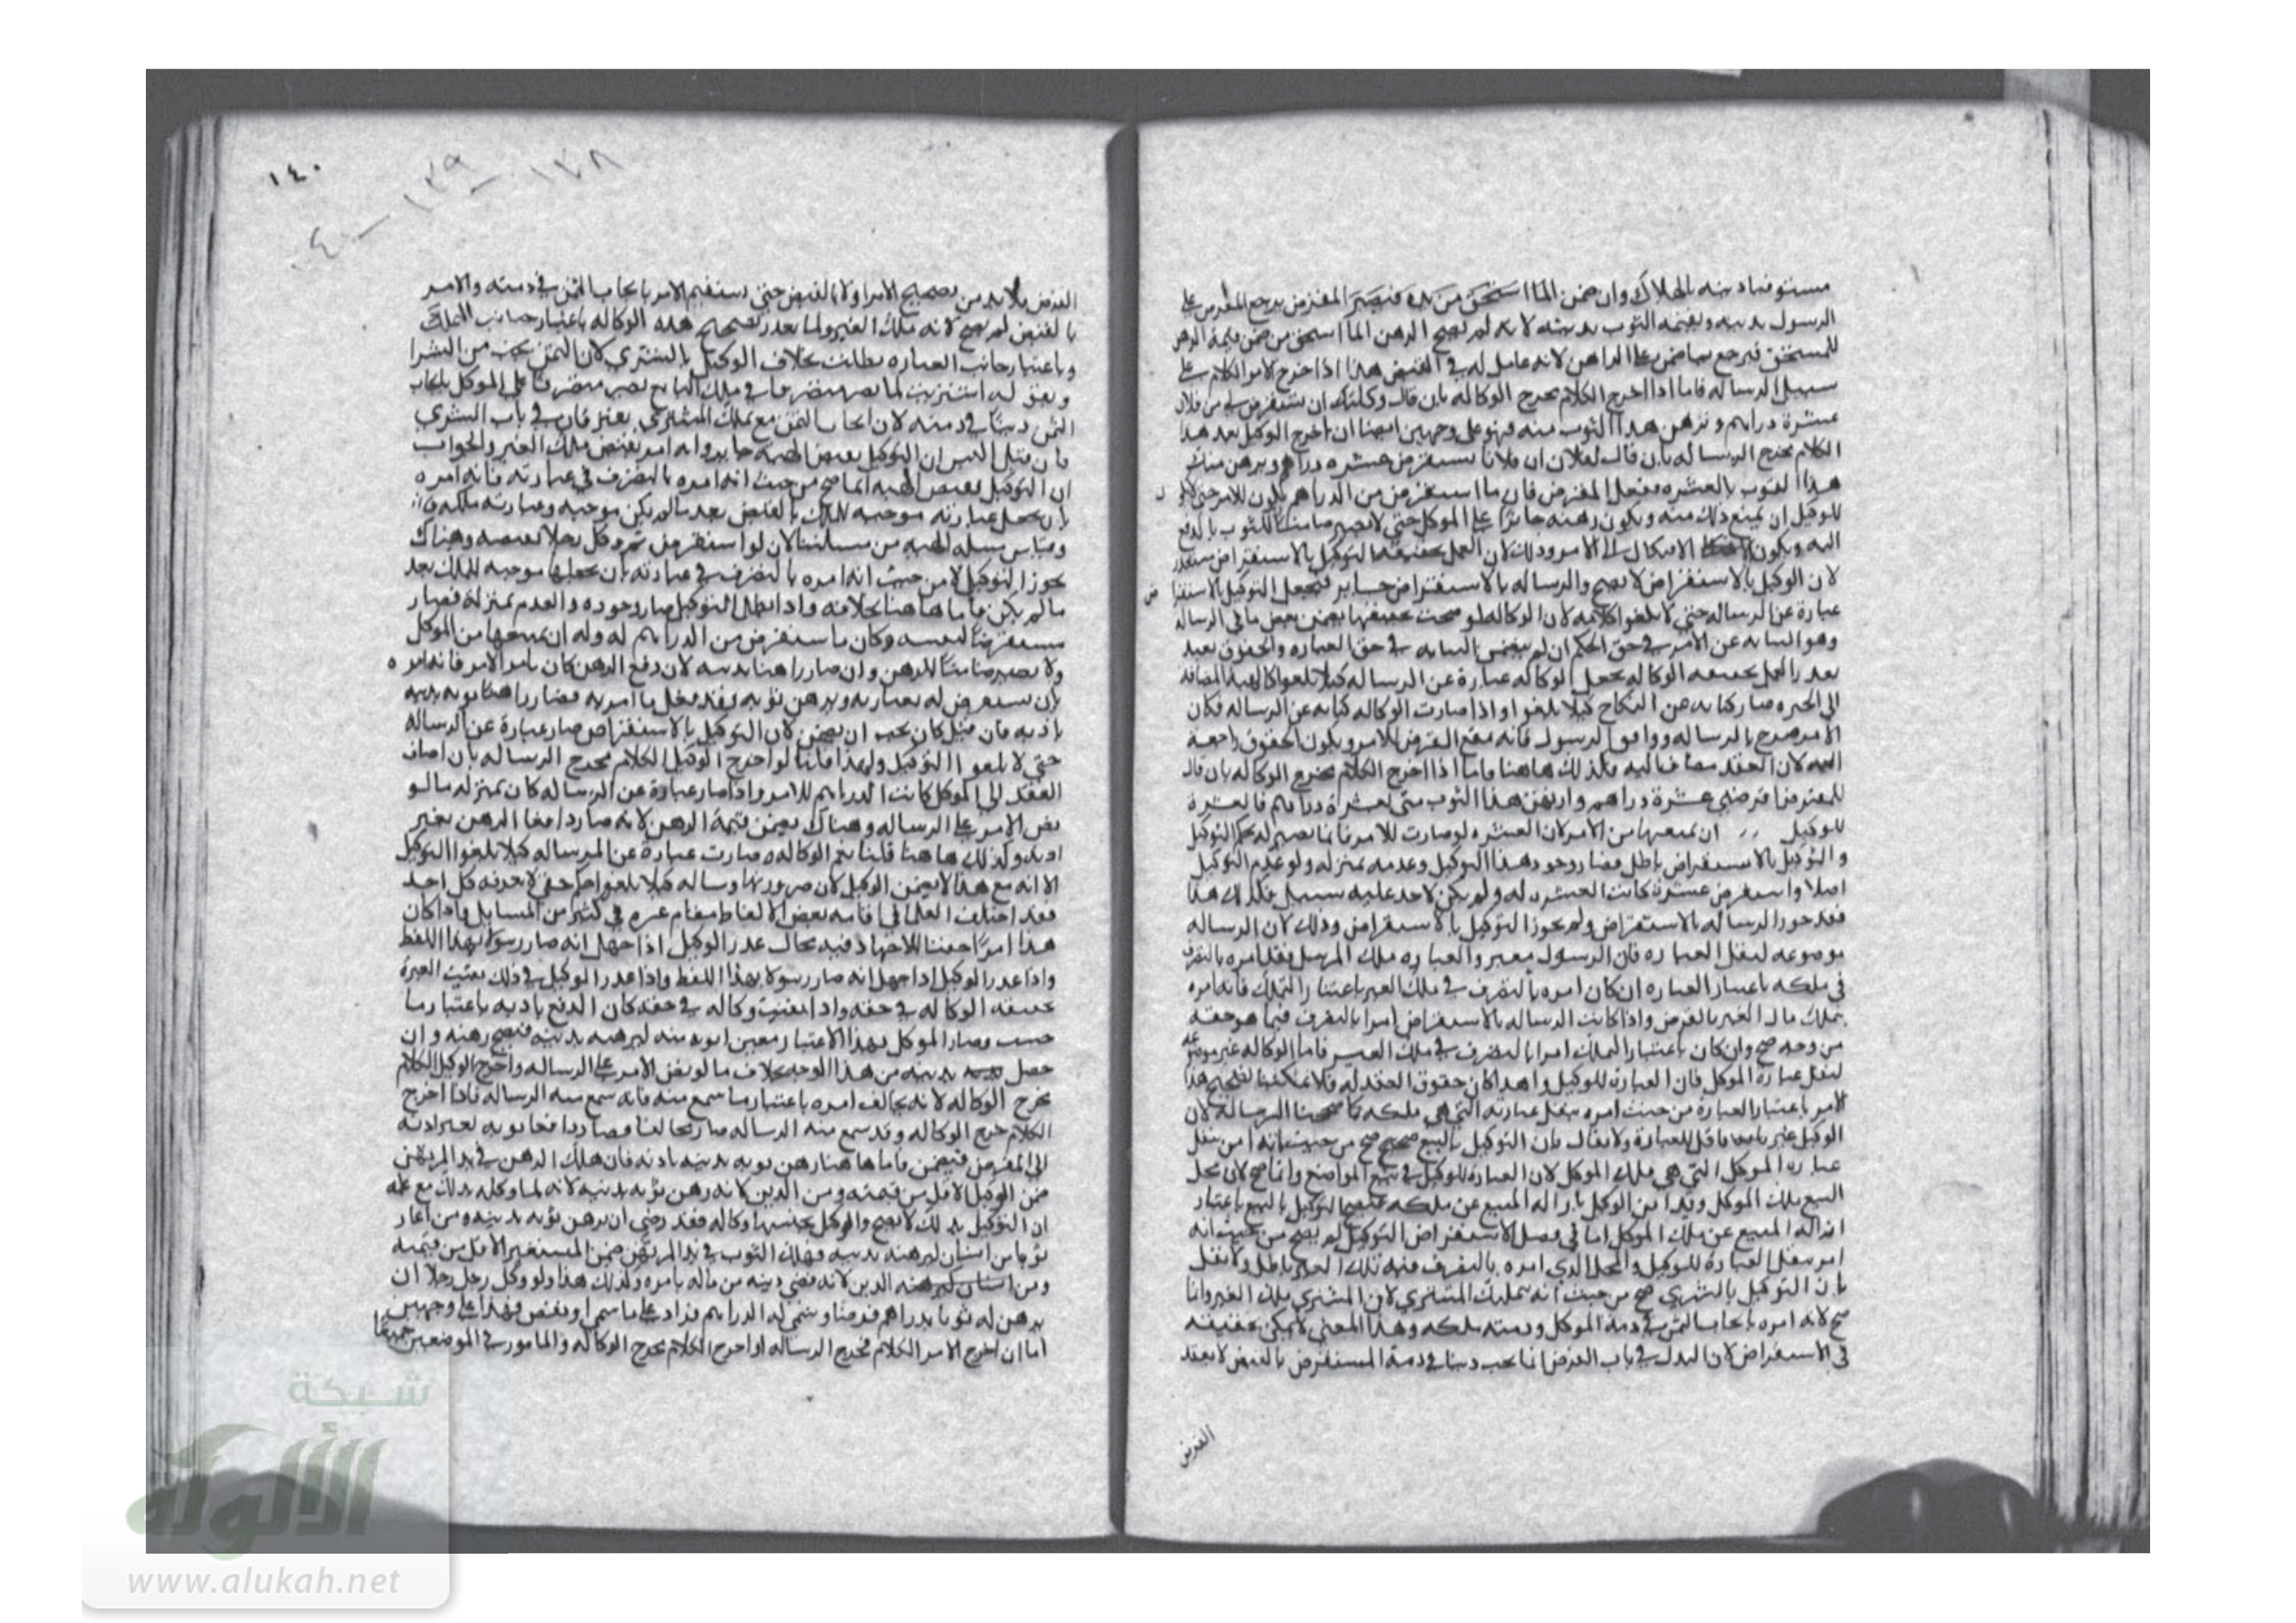 مستوفيا دينه بالهلاك وان ضمن الما استحق من يده فيصير المقرض يرجع المقرض على
الرسول بدينه وبقيمة الثوب بدينه لانه لم يصح الرهن الما استحق من ضمن قيمة الرهن
للمستحق فيرجع بما ضمن على الراهن لانه عامل له في القبض هذا اذا خرج الامر الكلام على
سبيل الرساله فاما اذا اخرج الكلام مخرج الوكاله بان قال وكلتك ان تستقرض لي من فلان
عشرة دراهم وترهن هذا الثوب منه فهو على وجهين ايضا ان اخرج الوكيل بعد هذا
الكلام مخرج الرساله بان قال لفلان ان فلانا يستقرض منك عشره دراهم ويرهن منك
هذا الثوب بالعشره ففعل المقرض فان ما استقرض من الدراهم يكون للامر حتى
للوكيل ان يمنع ذلك منه ويكون رهنه جائزا على الموكل حتى لا يصير ضامنا للثوب بالدفع
اليه ويكون الامر وذلك لان العمل بحقيقة التوكيل بالاستقراض متعذر
لان الوكيل بالاستقراض لا يصح والرساله بالاستقراض جايز فيجعل التوكيل بالاستقرا
عبارة عن الرساله حتى لا يلغوا كلامه لان الوكاله لو صحت حقيقتها يضمن بعض ما في الرساله
وهو النيابه عن الامر في حق الحكم ان لم يتضمن النيابه في حق العباره والحقوق بعد
تعذر العمل بحقيقه الوكاله يجعل الوكاله عبارة عن الرساله كيلا تلغوا كالهبة المضافه
الى الحره صار كنايه عن النكاح كيلا يلغوا واذا صارت الوكاله كنايه عن الرساله فكان
الامر صرح بالرساله الرسول فانه يقع القرض للامر ويكون الحقوق راجعة
اليه لان العقد مضافا اليه فكذلك هاهنا فاما اذا اخرج الكلام مخرج الوكاله بان قال
للمقرض اقرضني عشرة دراهم وارتهن هذا الثوب مني بعشرة دراهم فالعشرة
للوكيل ان يمنعها من الامر لان العشره لو صارت للامر فانما يصير له بحكم التوكيل
والتوكيل بالاستقراض باطل فصار وجود هذا التوكيل وعدمه بمنزله ولو عدم التوكيل
اصلا واستقرض عشرة كانت العشره له ولم يكن لاحد عليه سبيل فكذلك هذا
فقد جوز الرساله بالاستقراض ولم يجوز التوكيل بالاستقراض وذلك لان الرساله
موضوعه لنقل العباره فان الرسول معبر والعباره ملك المرسل فقد امره بالتصرف
في ملكه باعتبار العباره ان كان امره بالتصرف في ملك الغير باعتبار التملك فانه امره
بتملك مال الغير بالقرض واذا كانت الرساله بالاستقراض امرا بالتصرف فيما هو حقه
من وجه صح وان كان باعتبار التملك امرا بالتصرف في ملك الغير فاما الوكاله غير موضوعه
لنقل عبارة الموكل فان العبارة للوكيل ولهذا كان حقوق العقد له فلا يمكننا تصحيح هذا
الامر باعتبار العبارة من حيث امره بنقل عبارته التي هي ملكه كما صححنا الرساله لان
الوكيل غير ناقل للعبارة ولا يقال بان التوكيل بالبيع صحيح صح من حيث انه امر بنقل
عباره الموكل التي هي ملك الموكل لان العبارة للوكيل في جميع المواضع وانما صح لان محل
البيع ملك الموكل وقد امر الوكيل بازاله المبيع عن ملكه فيصح التوكيل بالبيع باعتبار
ازاله المبيع عن ملك الموكل اما في فصل الاستقراض التوكيل لم يصح من حيث انه
امر بنقل العبارة للوكيل والمحل الذي امره بالتصرف فيه ملك الغير باطل ولا يقال
بان التوكيل بالشرى صح من حيث انه تمليك المشتري لان المشترى ملك الغير وانما
صح لانه امره بايجاب الثمن في ذمة الموكل وذمته ملكه وهذا المعنى لا يمكن تحقيقه
في الاستقراض لان البدل في باب القرض انما يجب دينا في ذمة المستقرض بالقبض لا بعقد
القرض
١٤٠
١٣٨ - ١٣٩ - ١٤٠
القرض فلا بد من تصحيح الامر اولا بالقبض حتى يستقيم الامر بايجاب الثمن في ذمته والامر
بالقبض لم يصح لانه ملك الغير ولما تعذر تصحيح هذه الوكاله باعتبار جانب التملك
وباعتبار جانب العباره بطلت بخلاف الوكيل بالشترى لان الثمن يجب من الشرا
وبعق له اشتريت لما يصير متصرفا في ملك البايع يصير متصرفا على الموكل بايجاب
الثمن دينا في ذمته لان ايجاب الثمن مع تملك المشترى يعتبران في باب الشرى
فان قيل اليس ان التوكيل بقبض الهبه جايز وانه امر بقبض ملك الغير والجواب
ان التوكيل بقبض الهبه انما صح من حيث انه امره بالتصرف في عبارته فانه امره
بان يجعل عبارته موجبه للملك بالقبض بعد مالم يكن موجبه وعبارته ملكه
وقياس مسله الهبه من مسئلتنا لان لو استقرض ثم وكل رجلا بقبضه وهناك
يجوز التوكيل لا من حيث انه امره بالتصرف في عبارته بان يجعلها موجبه للملك بعد
ما لم يكن فاما هاهنا بخلافه واذا بطل التوكيل صار وجوده والعدم بمنزلة فصار
مستقرضا لنفسه وكان ما استقرض من الدراهم له وله ان يمنعها من الموكل
ولا يصير ضامنا للرهن وان صار راهنا بدينه لان دفع الرهن كان بامر الامر فانه امره
بان يستقرض له بعبارته ويرهن ثوبه وقد فعل ما امر به فصار راهنا ثوبه بدينه
باذنه فان قيل كان يجب ان يضمن لان التوكيل بالاستقراض صار عبارة عن الرساله
حتى لا يلغوا التوكيل ولهذا قلنا لو اخرج الوكيل الكلام مخرج الرساله بان اضاف
العقد الى الموكل كانت الدراهم للامر واذا صار عبارة عن الرساله كان بمنزله ما لو
نص الامر على الرساله وهناك يضمن قيمة الرهن لانه صار دافعا الرهن بغير
اذنه وكذلك هاهنا قلنا نعم الوكاله صارت عبارة عن الرساله كيلا يلغوا التوكيل
الا انه مع هذا لا يضمن الوكيل لان صيرورتها رساله كيلا يلغوا امر خفي لا يعرفه كل احد
فقد اختلف العلما في اقامه بعض الالفاظ مقام غيره في كثير من المسايل واذا كان
هذا امرا خفيا للاجتهاد فيه مجال عذر الوكيل اذا جهل انه صار رسولا بهذا اللفظ
واذا عذر الوكيل اذا جهل انه صار رسولا بهذا اللفظ واذا عذر الوكيل في ذلك بقيت العبرة
بحقيقه الوكاله في حقه واذا بقيت وكاله في حقه كان الدفع باذنه باعتبار ما
حسب وصار الموكل بهذا الاعتبار معيرا ثوبه منه ليرهنه بدينه فيصح رهنه وان
حصل بدينه من هذا الوجه بخلاف ما لو نص الامر على الرساله واخرج الوكيل الكلام
مخرج الوكاله لانه يخالف امره باعتبار ما سمع منه فانه سمع منه الرساله فاذا اخرج
الكلام مخرج الوكاله وقد سمع منه الرساله صار مخالفا وصار دافعا ثوبه بغير اذنه
الى المقرض فيضمن فاما هاهنا رهن ثوبه بدينه باذنه فان هلك الرهن في يد المرتهن
ضمن الوكيل الاقل من قيمته ومن الدين لانه رهن ثوبه بدينه لانه لما وكله بذلك مع علمه
ان التوكيل بذلك لا يصح والوكيل يحسبها وكاله فقد رضى ان يرهن ثوبه بدينه ومن اعار
ثوبا من انسان ليرهنه بدينه فهلك الثوب في يد المرتهن ضمن المستعير الاقل من قيمته
ومن الدين لانه قضى دينه من ماله بامره وكذلك هذا ولو وكل رجل رجلا ان
يرهن له ثوبا بدراهم قرضا وسمى له الدراهم فزاد على ما سمى او نقص فهذا على وجهين
اما ان اخرج الامر الكلام مخرج الرساله او اخرج الكلام مخرج الوكاله والمامور في الموضعين جميعا
شبكة
الألوكة
www.alukah.net